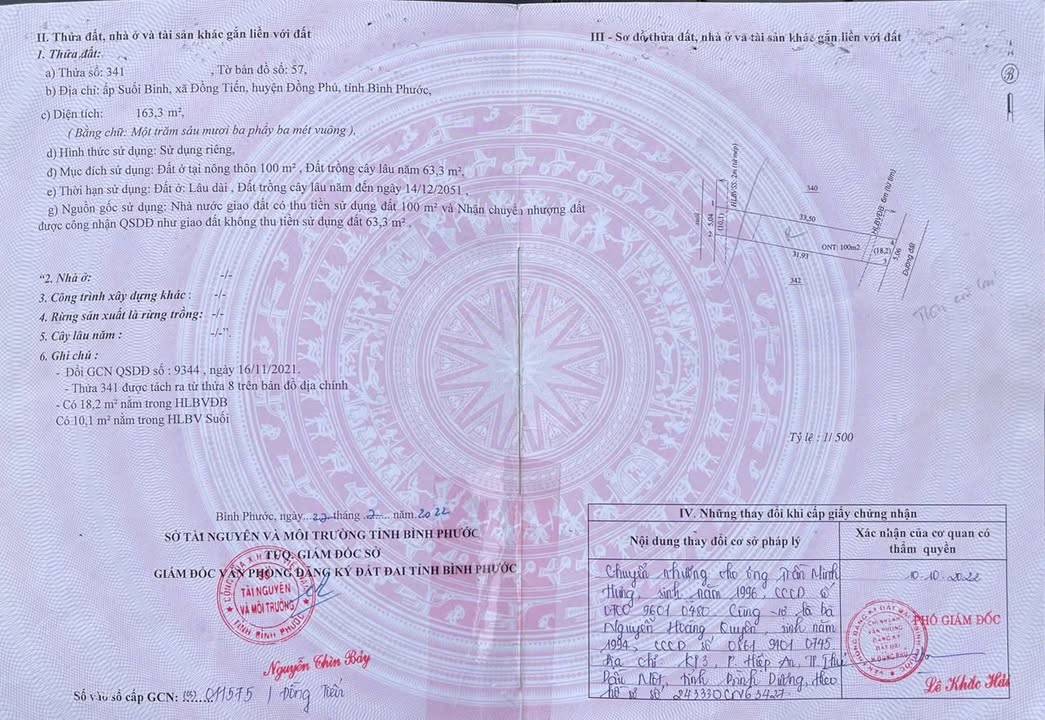 II. Thửa đất, nhà ở và tài sản khác gắn liền với đất
1. Thửa đất:
a) Thửa số: 341 , Tờ bản đồ số: 57,
b) Địa chỉ: ấp Suối Binh, xã Đồng Tiến, huyện Đồng Phú, tỉnh Bình Phước,
c) Diện tích: 163,3 m²,
( Bằng chữ: Một trăm sáu mươi ba phẩy ba mét vuông ),
d) Hình thức sử dụng: Sử dụng riêng,
đ) Mục đích sử dụng: Đất ở tại nông thôn 100 m² , Đất trồng cây lâu năm 63,3 m²,
e) Thời hạn sử dụng: Đất ở: Lâu dài , Đất trồng cây lâu năm đến ngày 14/12/2051 ,
g) Nguồn gốc sử dụng: Nhà nước giao đất có thu tiền sử dụng đất 100 m² và Nhận chuyển nhượng đất
được công nhận QSDĐ như giao đất không thu tiền sử dụng đất 63,3 m² .
“2. Nhà ở: -/-
3. Công trình xây dựng khác : -/-
4. Rừng sản xuất là rừng trồng: -/-
5. Cây lâu năm : -/-”.
6. Ghi chú :
- Đổi GCN QSDĐ số : 9344 , ngày 16/11/2021.
- Thửa 341 được tách ra từ thửa 8 trên bản đồ địa chính
- Có 18,2 m² nằm trong HLBVĐB
Có 10,1 m² nằm trong HLBV Suối
Bình Phước, ngày...22 tháng ..2.... năm 2022
SỞ TÀI NGUYÊN VÀ MÔI TRƯỜNG TỈNH BÌNH PHƯỚC
TUQ. GIÁM ĐỐC SỞ
GIÁM ĐỐC VĂN PHÒNG ĐĂNG KÝ ĐẤT ĐAI TỈNH BÌNH PHƯỚC
SỞ
TÀI NGUYÊN
VÀ MÔI TRƯỜNG
TỈNH BÌNH PHƯỚC
Nguyễn Chín Bảy
Số vào sổ cấp GCN: 011575 / Đồng Tiến
III - Sơ đồ thửa đất, nhà ở và tài sản khác gắn liền với đất
B
HLBVSS: 2m (từ mép)
suối
5,04
(10,1)
340
33,50
ONT: 100m2
31,93
342
HLBVĐB: 6m (từ tim)
(18,2)
5,06
Đường đất
1
2
3
4
Tỷ lệ : 1/ 500
IV. Những thay đổi khi cấp giấy chứng nhận
Nội dung thay đổi cơ sở pháp lý
Xác nhận của cơ quan có
thẩm quyền
Chuyển nhượng cho ông Trần Minh
Hưng, sinh năm 1996, CCCD số
0700 9601 0480 Cùng vợ là bà
Nguyễn Hoàng Quyên, sinh năm
1994, CCCD số 0861 9401 0745
Địa chỉ: KP3, P. Hiệp An, TP Thủ
Dầu Một, tỉnh Bình Dương, theo
hồ sơ số 243330CN63427.
10-10-2022
PHÓ GIÁM ĐỐC
CHI NHÁNH
VĂN PHÒNG
ĐĂNG KÝ
ĐẤT ĐAI
H.ĐỒNG PHÚ
Lê Khắc Hải